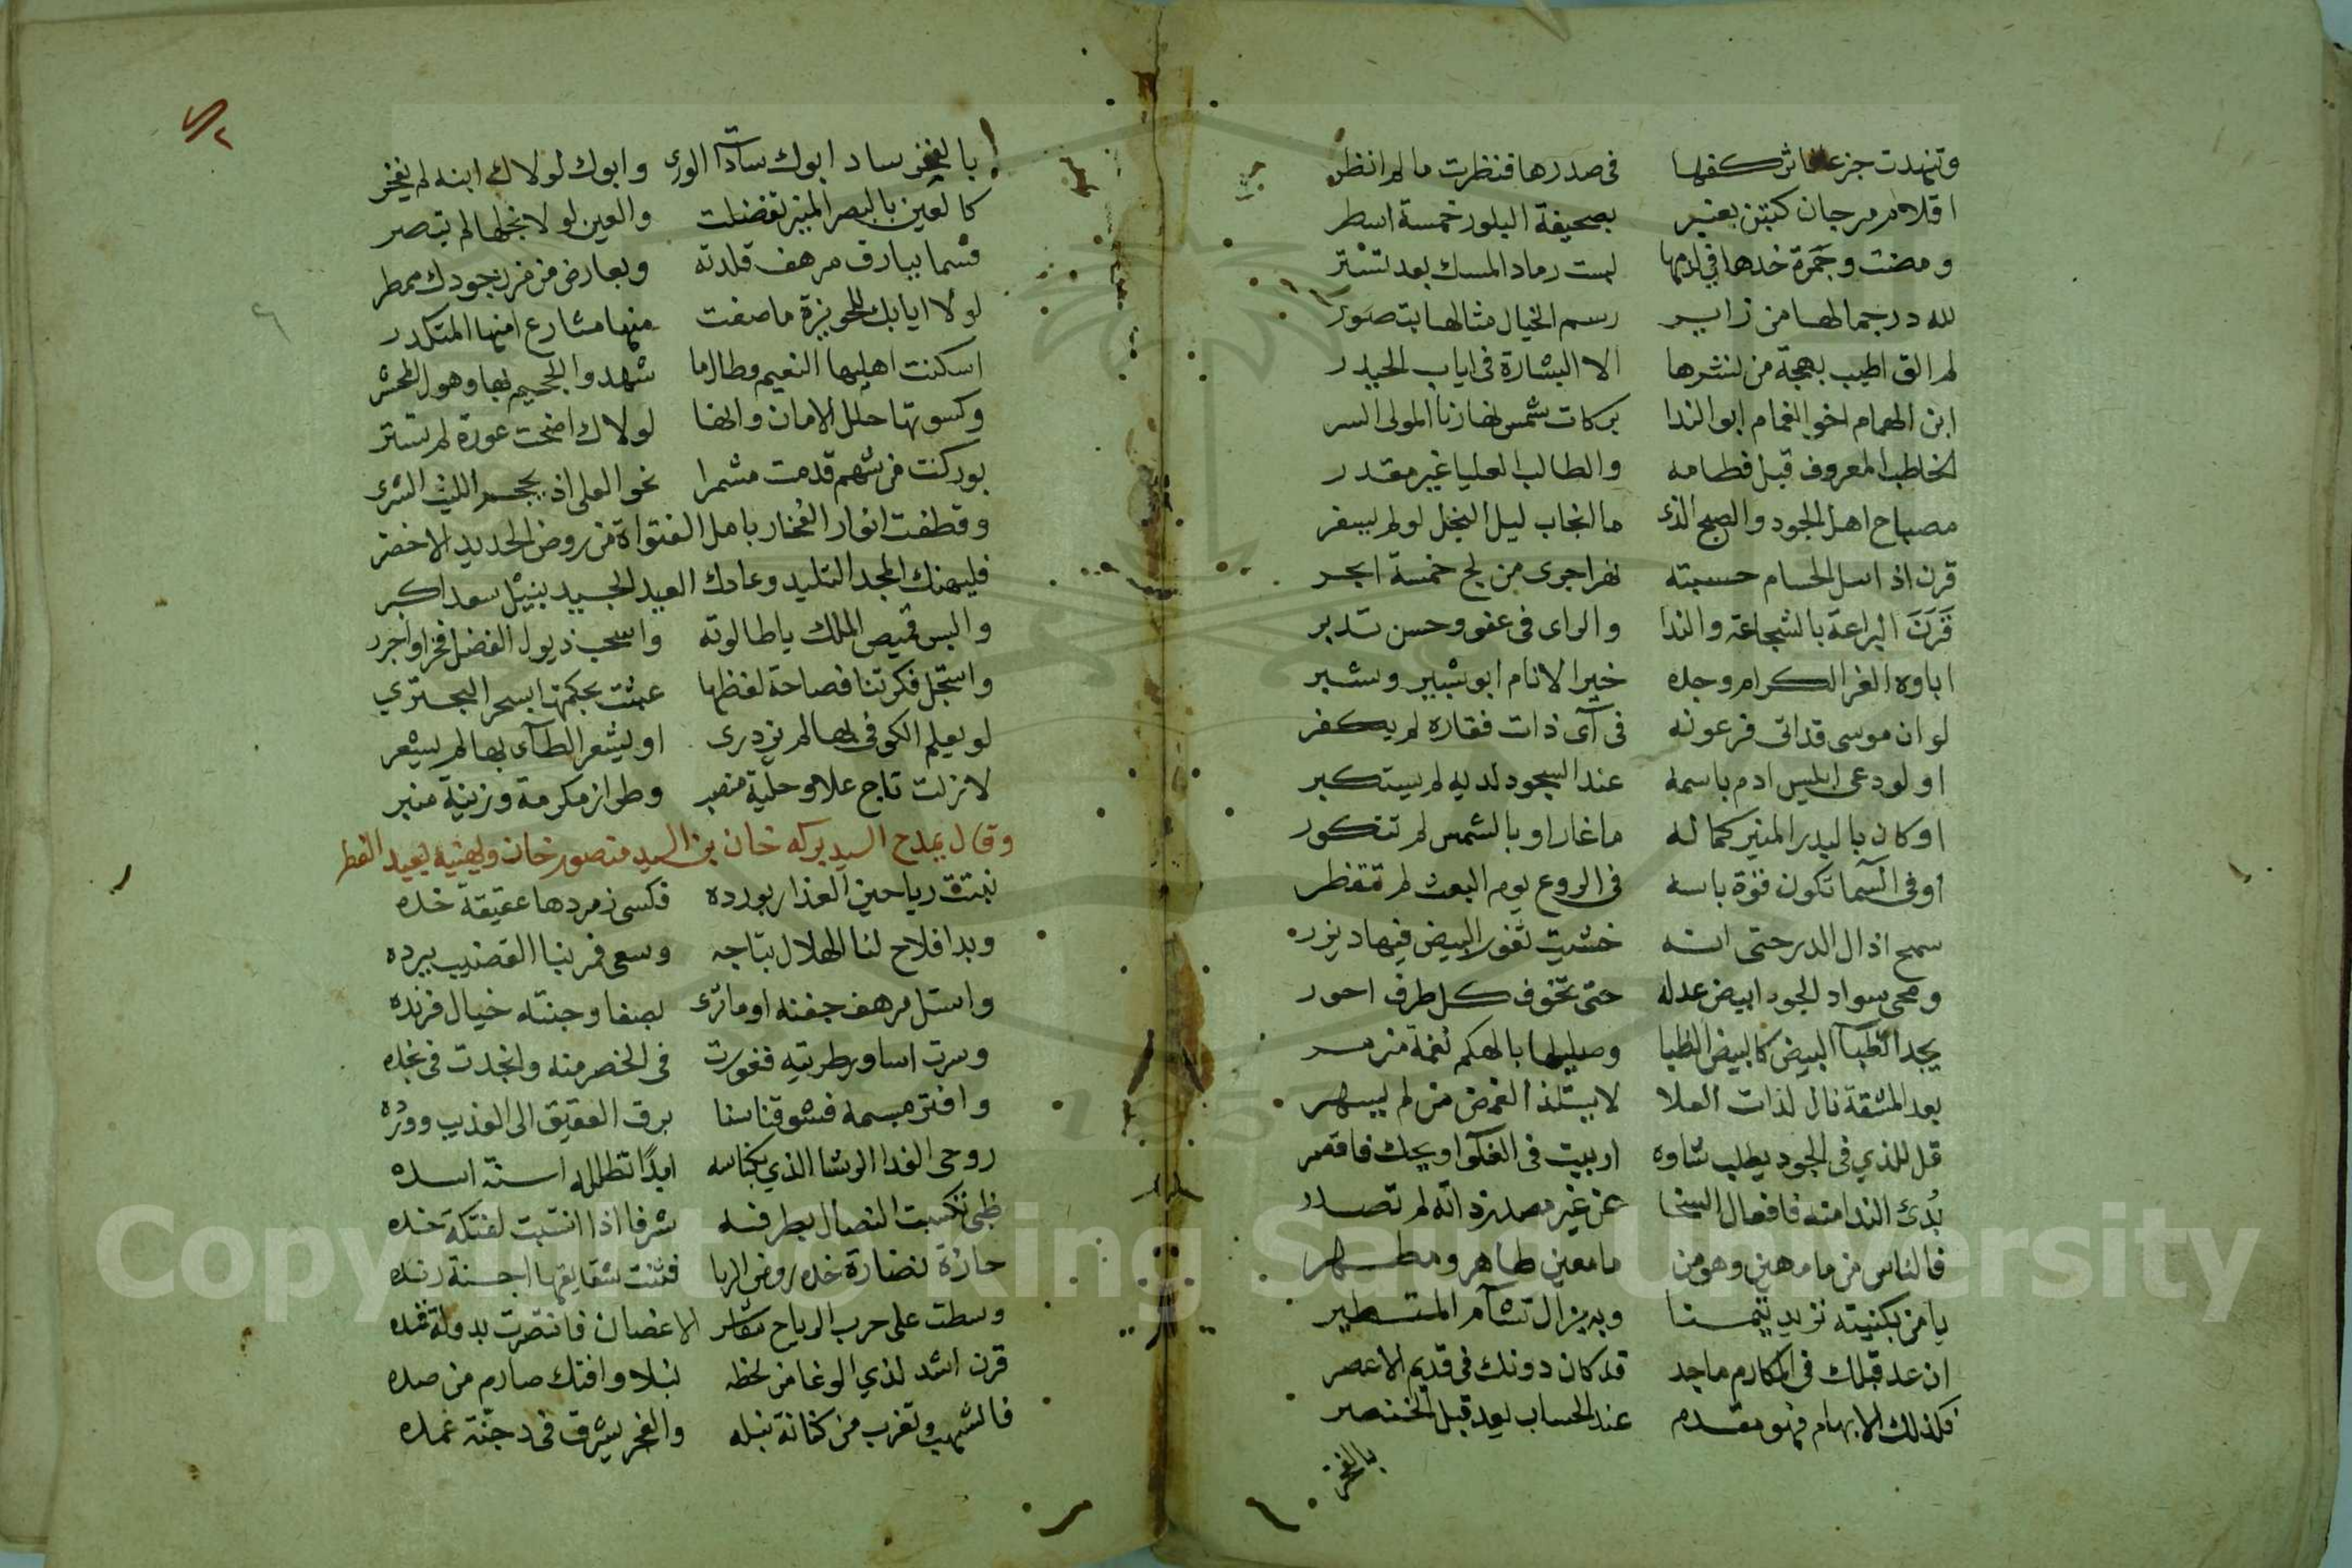 وتنهدت جزعا فاثر كفها في صدرها فنظرت مالم انظر
اقلام مرجان كتبن بعنبر بصحيفة البلور خمسة اسطر
ومضت وجمرة خدها في لثمها رماد المسك بعد تستر
لله در جمالها من زاير رسم الخيال مثالها بتصور
لم الق اطيب بهجة من نشرها الا البشارة في اياب الحيدر
ابن الهمام اخو الغمام ابو الندا بركات شمس نهارنا المولى السر
الخاطب المعروف قبل فطامه والطالب العليا غير مقدر
مصباح اهل الجود والصبح الذى ما انجاب ليل البخل لو لم يسفر
قرن اذا سل الحسام حسبته نهرا جرى من لج خمسة ابحر
قَرَنَ البراعة بالشجاعة والندا والراى في عفو وحسن تدبر
اباوه الغر الكرام وجده خير الانام ابو شبير وشبر
لو ان موسى قد اتى فرعونه في آى ذات فقاره لم يكفر
او لو دعى ابليس ادم باسمه عند السجود لديه لم يستكبر
او كان بالبدر المنير كماله ما غار او بالشمس لم تتكور
او في السما تكون قوة باسه في الروع يوم البعث لم تتفطر
سمح اذال الدر حتى انه خشيت ثغور البيض فيها ديزر
ومحى سواد الجور ابيض عدله حتى تخوف كل طرف احور
يجد الظبا البيض كالبيض الظبا وصليلها بالهكم نغمة مزمر
بعد المشقة نال لذات العلا لا يستلذ الغمض من لم يسهر
قل للذي في الجود يطلب شاوه اربيت في الغلوا ويحك فاقصر
بُدئ الندا منه فافعال السخا عن غير مصدر ذاته لم تصدر
فالناس من ما مهين وهو من ما معين طاهر ومطهر
يا من بكنيته نزيد تيمنا وبه يزال تشآم المتطير
ان عد قبلك في المكارم ماجد قد كان دونك في قديم الاعصر
فكذلك الابهام فهو مقدم عند الحساب يعد قبل الخنصر
بالفخر
بالفخر ساد ابوك سادات الورى وابوك لولاك ابنه لم يفخر
كالعين بالبصر المنير تفضلت والعين لولا نجلها لم تبصر
قسما ببارق مرهف قلدته وبعارض من مزن جودك ممطر
لولا ايابك للحويزة ما صفت منها مشارع امنها المتكدر
اسكنت اهليها النعيم وطال ما شهدوا الجحيم بها وهول المحشر
وكسوتها حلل الامان وانها لولاك اضحت عورة لم تستر
بوركت من شهم قدمت مشمرا نحو العلى اذ يحجم الليث الشرى
وقطفت انوار الفخار بانمل الفتواة من روض الحديد الاخضر
فليهنك المجد التليد وعادك العيد الجديد بنيل سعد اكبر
والبس قميص الملك يا طالوته واسحب ذيول الفضل فخرا واجرر
واستجل فكرتنا فصاحة لفظها عبثت بحكمتها بسحر البحتري
لو يعلم الكوفي بها لم يزدرى او يشعر الطآى بها لم يشعر
لا زلت تاج علا وحلية منصب وطراز مكرمة وزينة منبر
وقال يمدح السيد بركه خان بن السيد منصور خان ويهنيه بعيد الفطر
نبتت رياحين العذار بورده فكسى زمردها عقيقة خده
وبدا فلاح لنا الهلال بتاجه وسعى فمر بنا القضيب ببرده
واستل مرهف جفنه او ما ترى بصفا وجنته خيال فرنده
وسرت اساور طرتيه فغورت في الخصر منه وانجدت في نجده
وافتر مبسمه فشوقنا سنا برق العقيق الى العذيب وورده
روحي الفدا الرشا الذي بكناسه ابدًا تظلله اسنة اسده
ظبي تكسبت النصال بطرفه شرفا اذا انتسبت لفتكة خده
حازت نضارة خده روض الربا فثنت شقايقها اجنة رنده
وسطت على حرب الرياح الاغصان فانتصرت بدولة قده
قرن اشد لذي الوغا من لحظه نبلا وافتك صارم من صده
فالشهب تغرب من كنانة نبله والفجر يشرق في دجنة غمده
Copyright © King Saud University